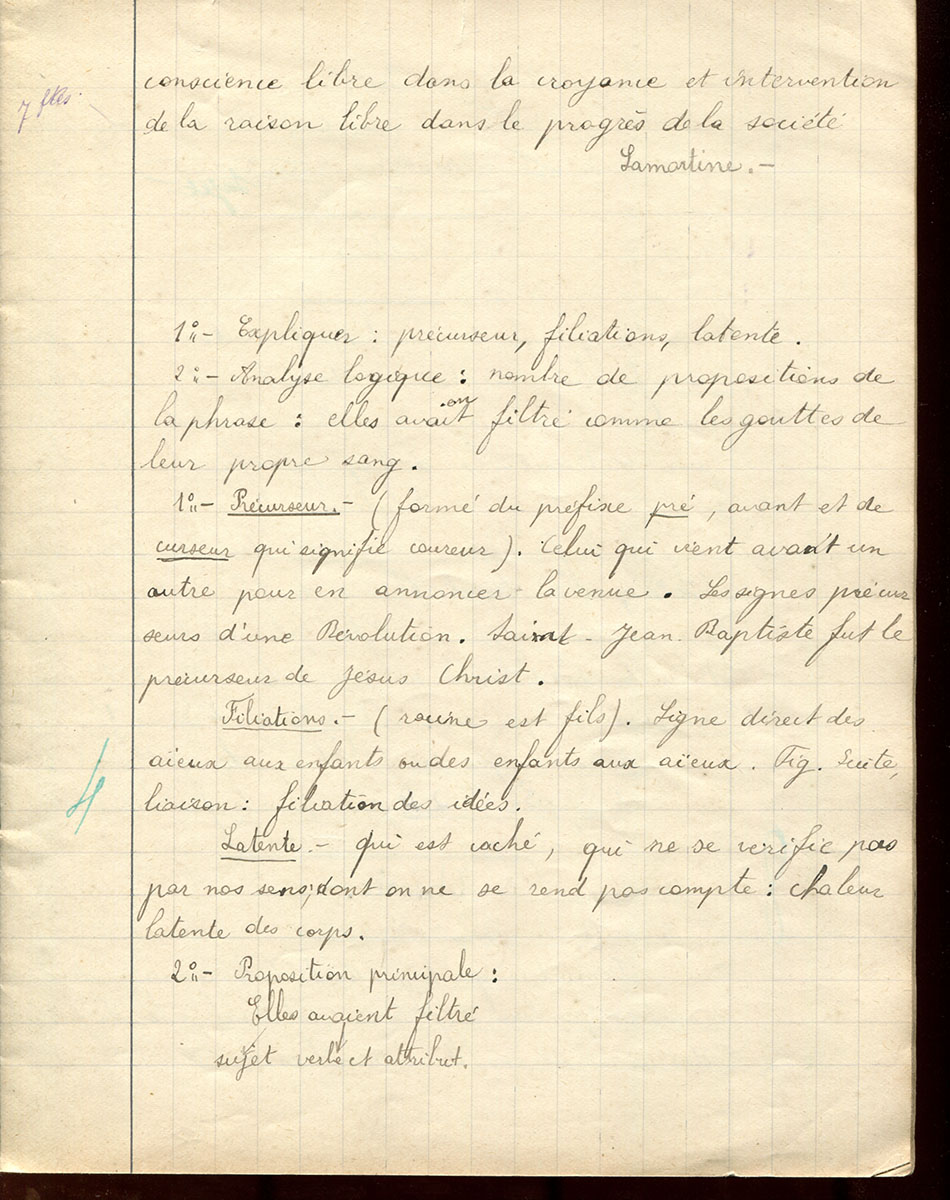 7 ftes.
conscience libre dans la croyance et intervention
de la raison libre dans le progrès de la société
Lamartine.-
1°- Expliquer : précurseur, filiations, latente.
2°- Analyse logique : nombre de propositions de
la phrase : elles avait on filtré comme les gouttes de
leur propre sang.
1°- Précurseur.- (formé du préfixe pré, avant et de
curseur qui signifie coureur). Celui qui vient avant un
autre pour en annoncer la venue. Les signes précur
seurs d'une Révolution. Saint-Jean-Baptiste fut le
précurseur de Jésus Christ.
Filiations.- (racine est fils). Ligne direct des
aïeux aux enfants ou des enfants aux aïeux. Fig. Suite,
liaison : filiation des idées.
4
Latente.- qui est caché, qui ne se vérifie pas
par nos sens, dont on ne se rend pas compte : chaleur
latente des corps.
2°- Proposition principale :
Elles avaient filtré
sujet verbe et attribut.